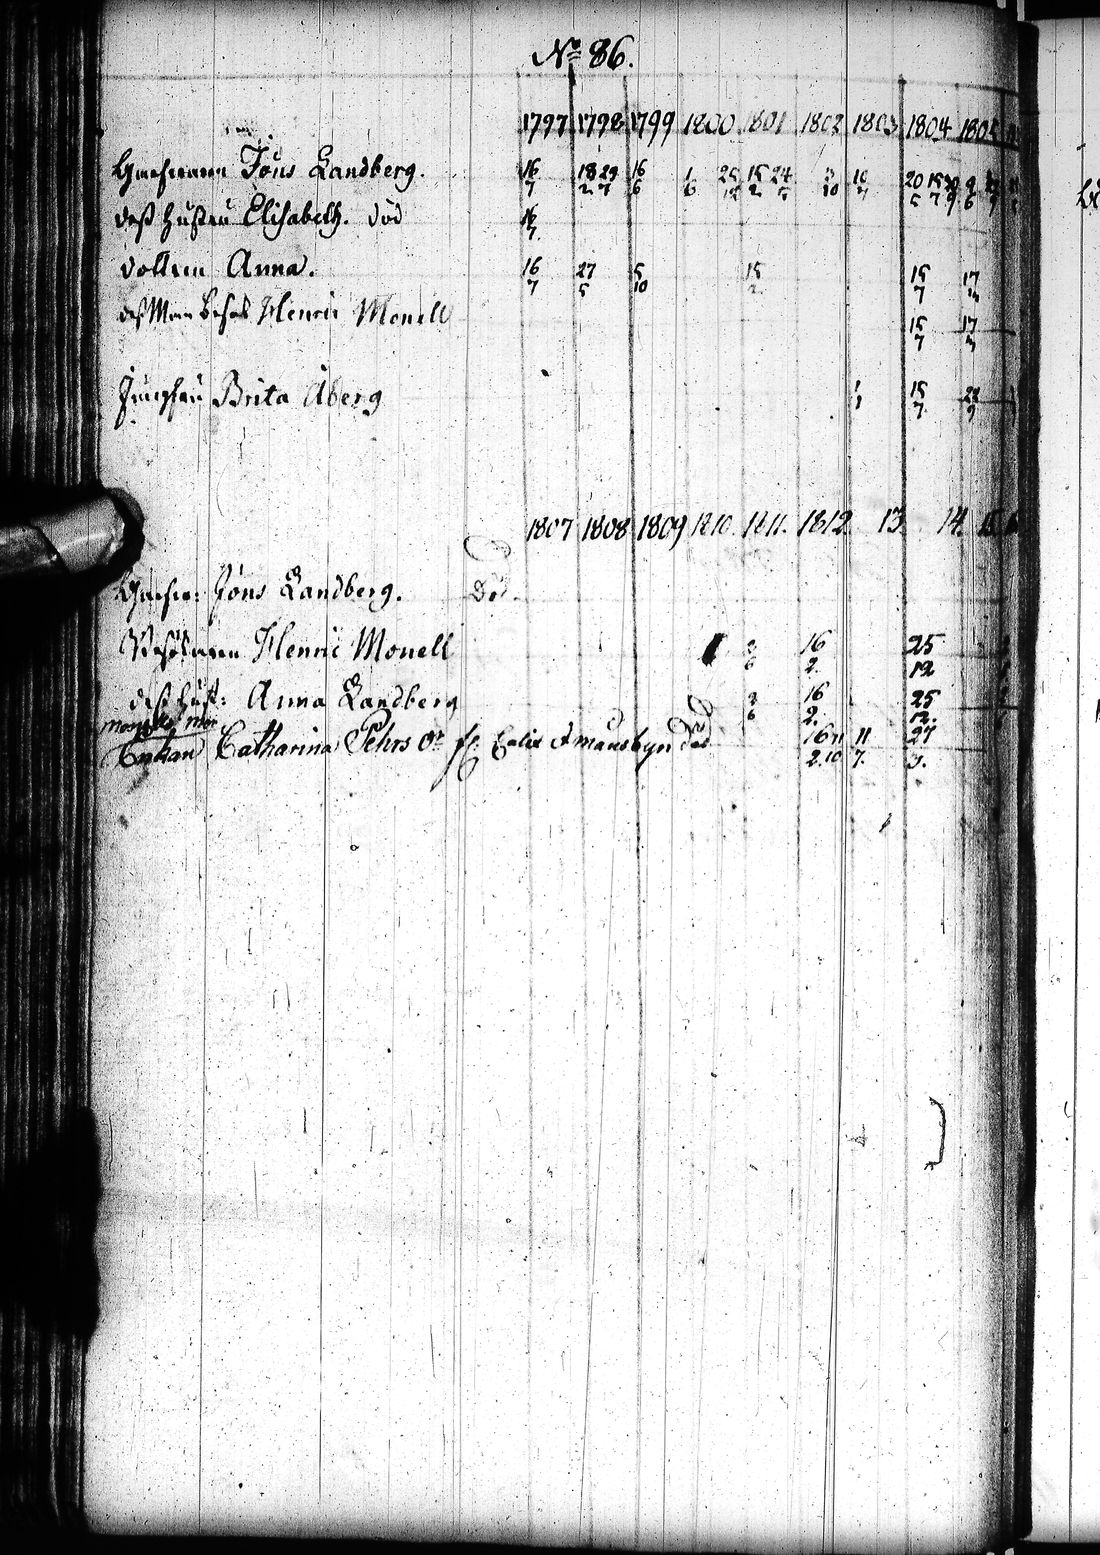 No 86.
1797 1798 1799 1800 1801 1802 1803 1804 1805
Jöns Landberg. 16/7 18/2 29/7 16/6 1/6 25/12 15/2 24/5 3/10 10/7 20/5 15/7
deß hustru Elisabeth. död 16/7.
dottren Anna. 16/7 27/5 5/10 15/2 15/7 17/3
deß Man Henric Monell 15/7 17/3
Jungfru Brita Åberg 1/1 15/7 22/9
1807 1808 1809 1810. 1811. 1812. 13. 14. 15
Jöns Landberg. Död.
Henric Monell 2/6 16/2. 25/12
deß hust: Anna Landberg 2/6 16/2. 25/12.
Monells Mor
Enkan Catharina Pehrs dr. fr: Calix Månsbyn död 16/2. 11/10 11/7. 27/3.